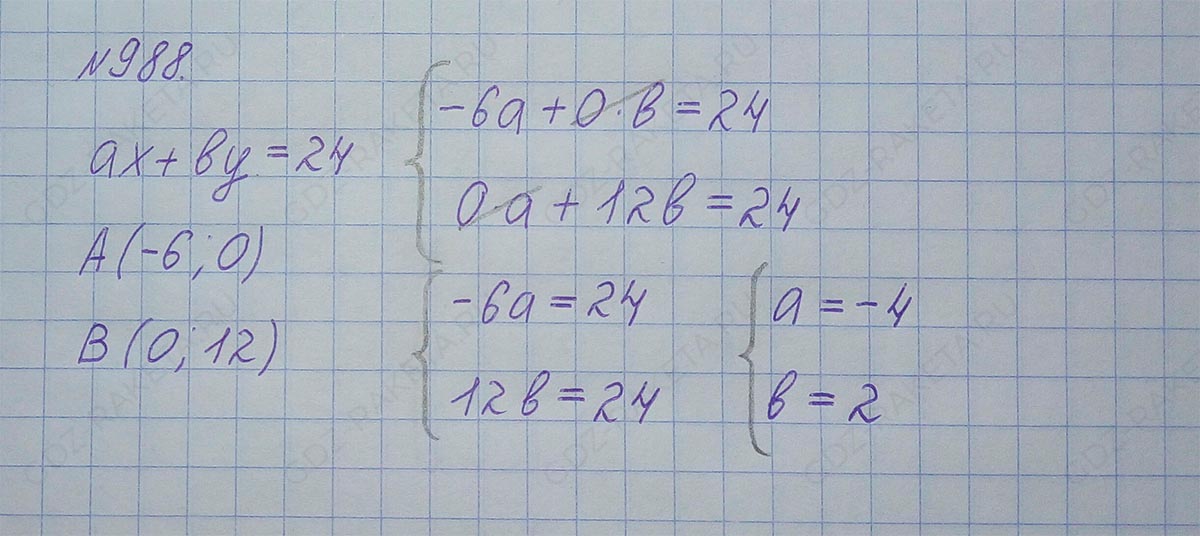 №988.
ax + by = 24
A (-6; 0)
B (0; 12)
-6a + 0·b = 24
0·a + 12b = 24
-6a = 24
12b = 24
a = -4
b = 2
GDZ-RAKETA.RU